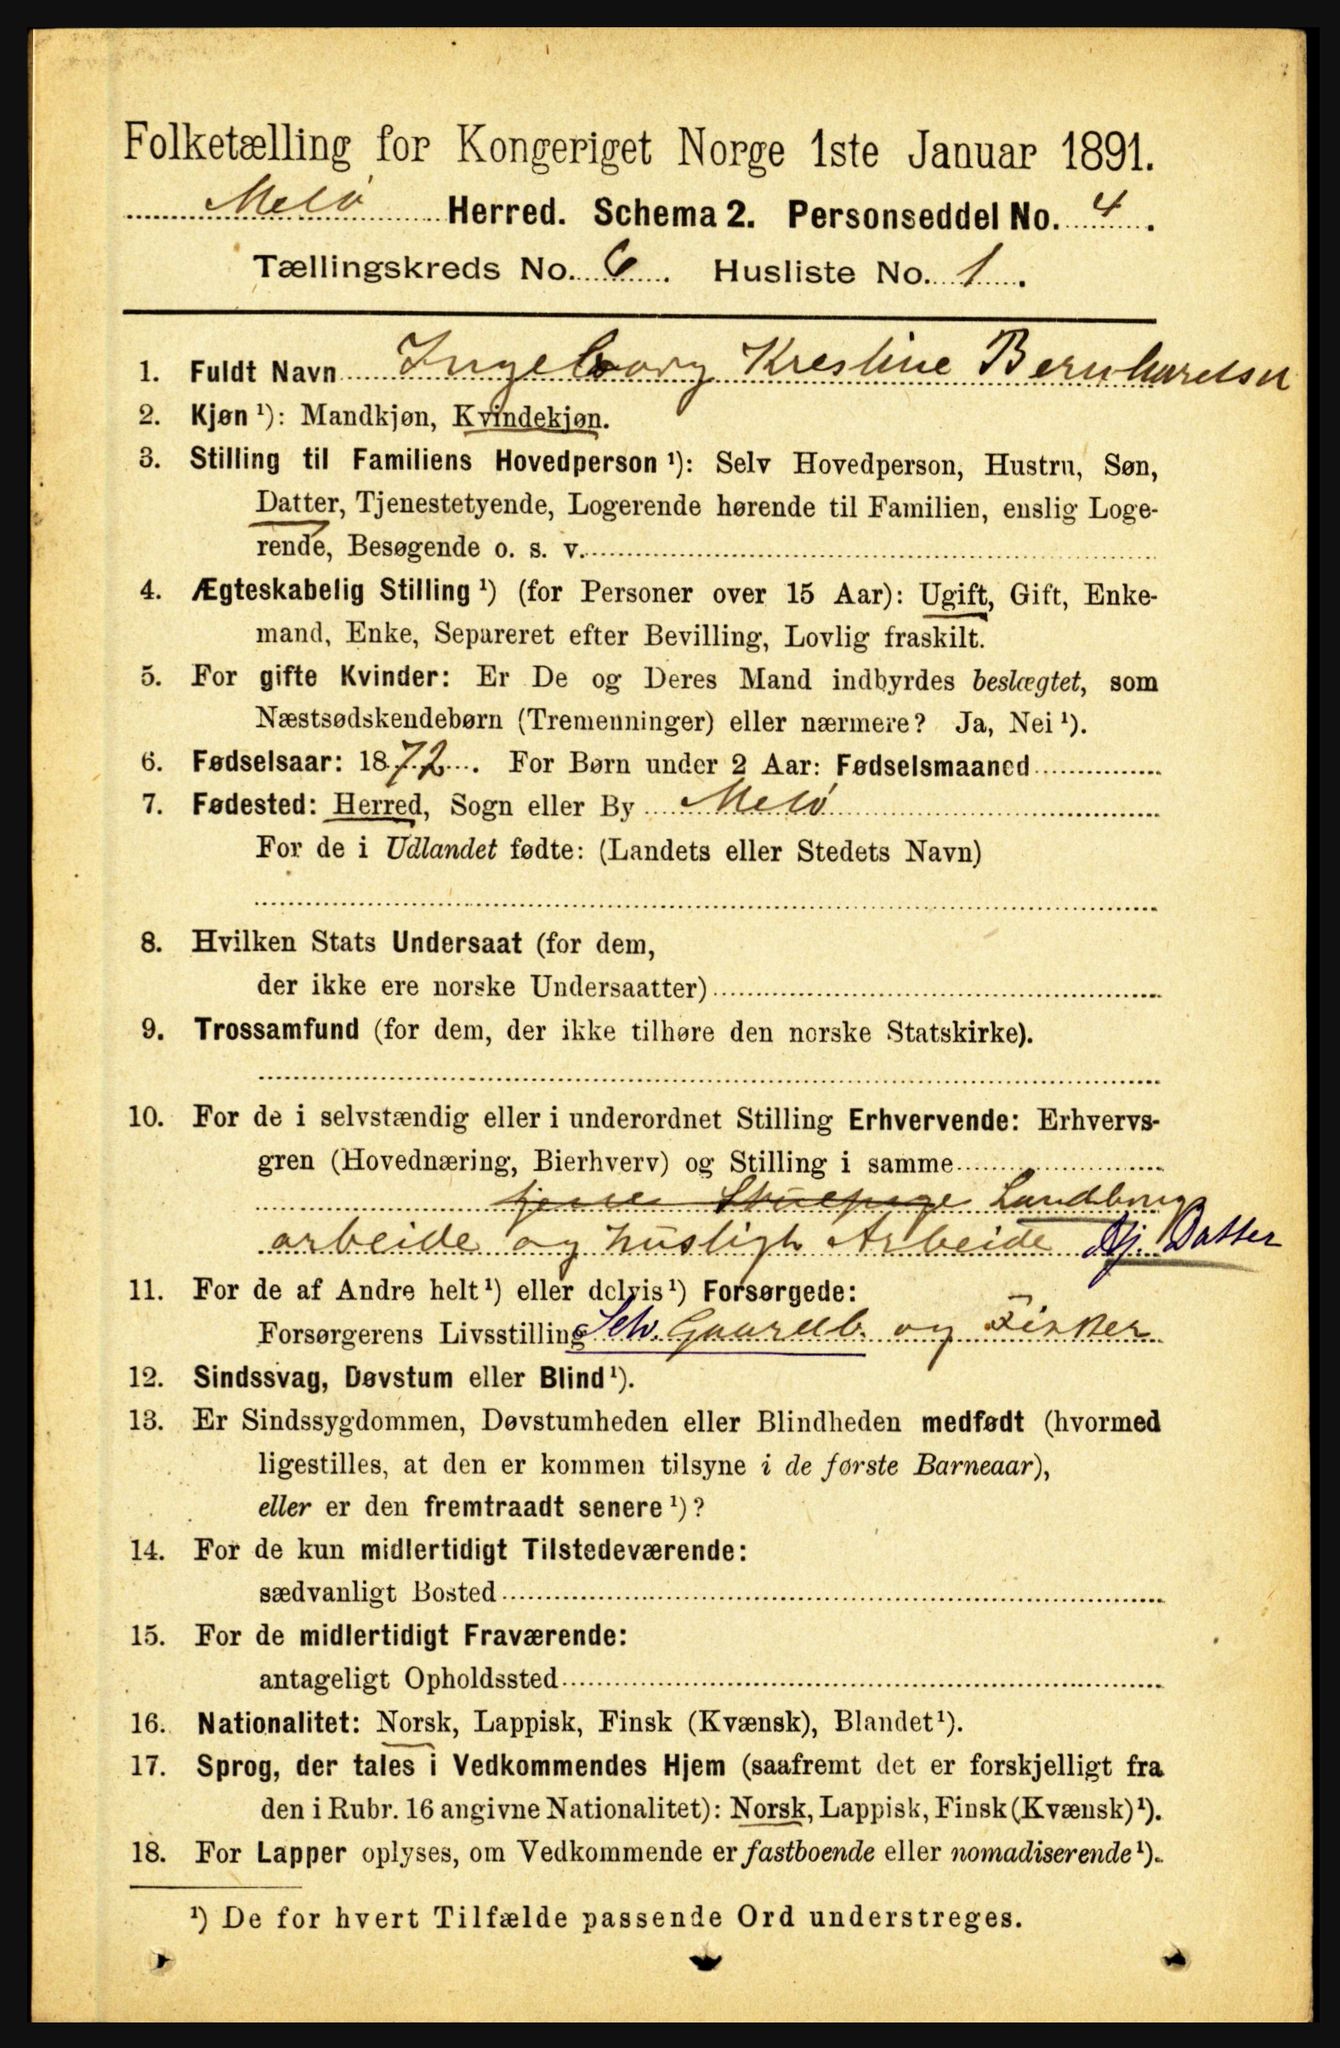 Folketælling for Kongeriget Norge 1ste Januar 1891.
Melø Herred. Schema 2. Personseddel No. 4.
Tællingskreds No. 6. Husliste No. 1.
1. Fuldt Navn Ingeborg Krestine Bernhardsen
2. Kjøn ¹): Mandkjøn, Kvindekjøn.
3. Stilling til Familiens Hovedperson ¹): Selv Hovedperson, Hustru, Søn,
Datter, Tjenestetyende, Logerende hørende til Familien, enslig Loge-
rende, Besøgende o. s. v.
4. Ægteskabelig Stilling ¹) (for Personer over 15 Aar): Ugift, Gift, Enke-
mand, Enke, Separeret efter Bevilling, Lovlig fraskilt.
5. For gifte Kvinder: Er De og Deres Mand indbyrdes beslægtet, som
Næstsødskendebørn (Tremenninger) eller nærmere? Ja, Nei ¹).
6. Fødselsaar: 1872. For Børn under 2 Aar: Fødselsmaaned
7. Fødested: Herred, Sogn eller By Melø
For de i Udlandet fødte: (Landets eller Stedets Navn)
8. Hvilken Stats Undersaat (for dem,
der ikke ere norske Undersaatter)
9. Trossamfund (for dem, der ikke tilhøre den norske Statskirke).
10. For de i selvstændig eller i underordnet Stilling Erhvervende: Erhvervs-
gren (Hovednæring, Bierhverv) og Stilling i samme
Landbrugs
arbeide og huslight Arbeide Hj. Datter
11. For de af Andre helt ¹) eller delvis ¹) Forsørgede:
Forsørgerens Livsstilling Selv. Gaardb. og Fisker
12. Sindssvag, Døvstum eller Blind ¹).
13. Er Sindssygdommen, Døvstumheden eller Blindheden medfødt (hvormed
ligestilles, at den er kommen tilsyne i de første Barneaar),
eller er den fremtraadt senere ¹)?
14. For de kun midlertidigt Tilstedeværende:
sædvanligt Bosted
15. For de midlertidigt Fraværende:
antageligt Opholdssted
16. Nationalitet: Norsk, Lappisk, Finsk (Kvænsk), Blandet ¹).
17. Sprog, der tales i Vedkommendes Hjem (saafremt det er forskjelligt fra
den i Rubr. 16 angivne Nationalitet): Norsk, Lappisk, Finsk (Kvænsk) ¹).
18. For Lapper oplyses, om Vedkommende er fastboende eller nomadiserende ¹).
¹) De for hvert Tilfælde passende Ord understreges.